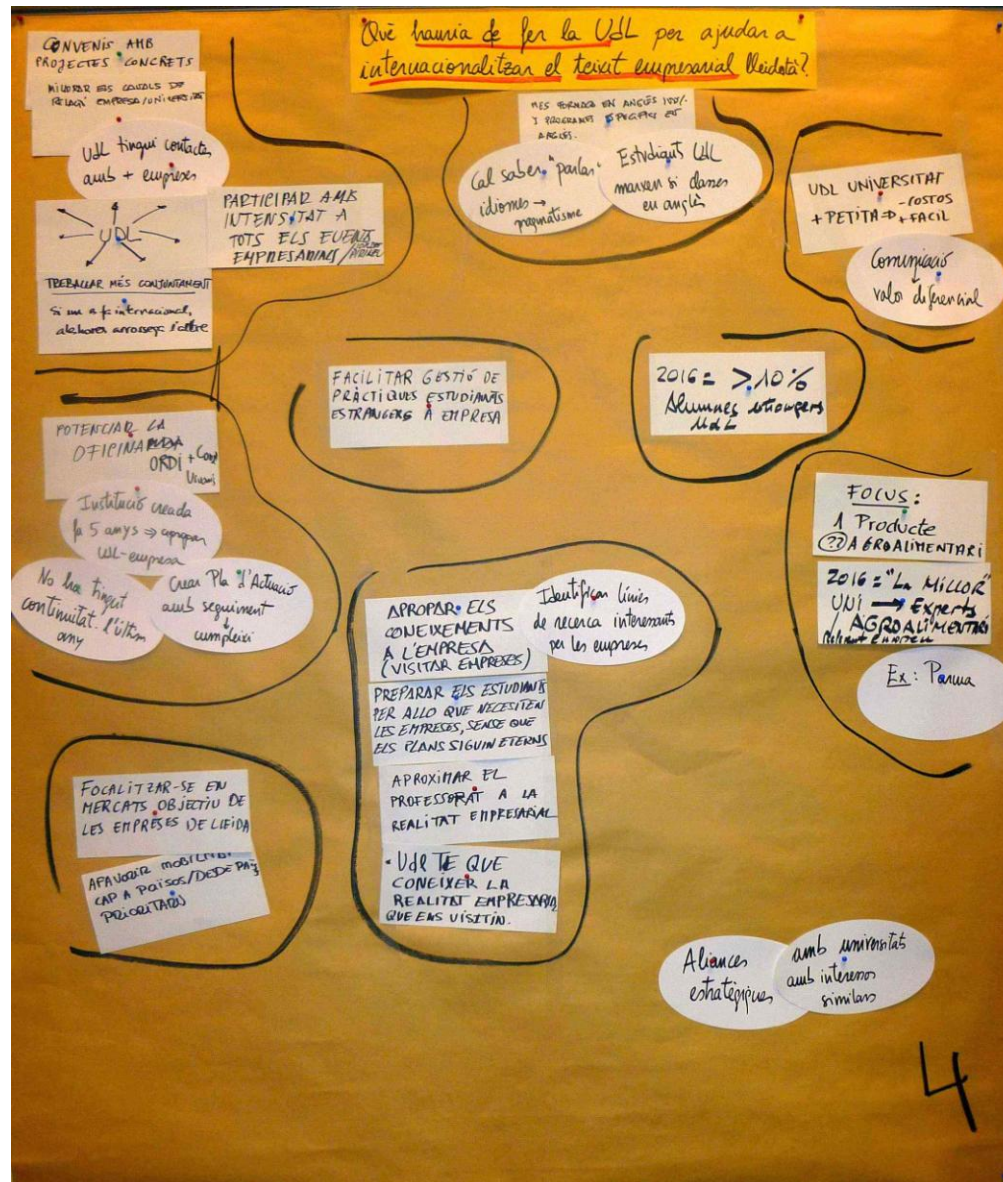 Què hauria de fer la UdL per ajudar a
internacionalitzar el teixit empresarial lleidatà?
CONVENIS AMB
PROJECTES CONCRETS
MILLORAR ELS CANALS DE
RELACIÓ EMPRESA/UNIVERSITAT
UdL tingui contactes
amb + empreses
UDL
TREBALLAR MÉS CONJUNTAMENT
Si un a fa internacional,
aleshores arrossega l'altre
PARTICIPAR AMB
INTENSITAT A
TOTS ELS EVENTS
EMPRESARIALS/
MES FORMACIÓ EN ANGLÈS 100%
I PROGRAMES ESPECIFICS EN
ANGLÈS.
Cal saber "parlar"
idiomes →
pragmatisme
Estudiants UdL
marxen si classes
en anglès
UDL UNIVERSITAT
+ PETITA ⇒ - COSTOS
+ FACIL
Comunicació
valor diferencial
FACILITAR GESTIÓ DE
PRÀCTIQUES ESTUDIANTS
ESTRANGERS A EMPRESA
2016 = > 10%
Alumnes estrangers
UdL
POTENCIAR LA
OFICINA
ORDI + Cons
Usuaris
Institució creada
fa 5 anys ⇒ apropar
UdL-empresa
No ha tingut
continuitat l'últim
any
Crear Pla d'Actuació
amb seguiment
cumpleixi
FOCUS:
1 Producte
?? AGROALIMENTARI
2016 = "LA MILLOR"
UNI → Experts
AGROALIMENTARI
Ex: Parma
APROPAR ELS
CONEIXEMENTS
A L'EMPRESA
(VISITAR EMPRESES)
Identificar línies
de recerca interessants
per les empreses
PREPARAR ELS ESTUDIANTS
PER ALLO QUE NECESITEN
LES EMPRESES, SENSE QUE
ELS PLANS SIGUIN ETERNS
APROXIMAR EL
PROFESSORAT A LA
REALITAT EMPRESARIAL
• UdL TE QUE
CONEIXER LA
REALITAT EMPRESARIAL
QUE ENS VISITIN.
FOCALITZAR-SE EN
MERCATS OBJECTIU DE
LES EMPRESES DE LLEIDA
AFAVORIR MOBILITAT
CAP A PAÏSOS/DESDE PAÏS
PRIORITARIS
Aliances
estratègiques
amb universitats
amb interessos
similars
4